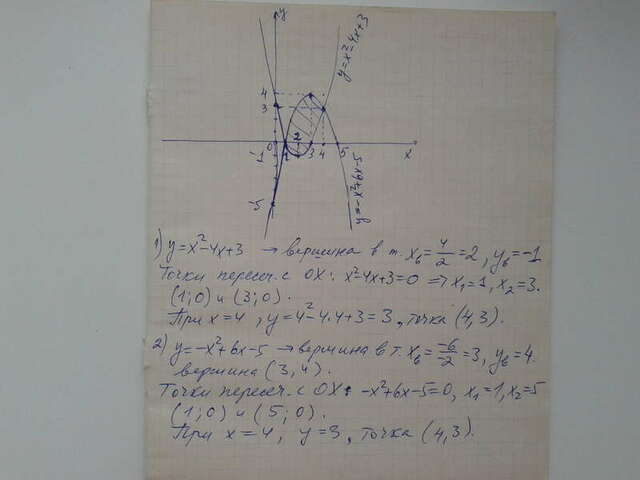 y
y=x²-4x+3
4
3
0 1 2 3 4 5 x
-1
-5
y=-x²+6x-5
1) y=x²-4x+3 → вершина в т. x_в=4/2=2, y_в=-1
Точки пересеч. с OX: x²-4x+3=0 ⇒ x₁=1, x₂=3.
(1;0) и (3;0).
При x=4, y=4²-4·4+3=3, точка (4,3).
2) y=-x²+6x-5 → вершина в т. x_в=-6/-2=3, y_в=4.
вершина (3,4).
Точки пересеч. с OX: -x²+6x-5=0, x₁=1, x₂=5
(1;0) и (5;0).
При x=4, y=3, точка (4,3).